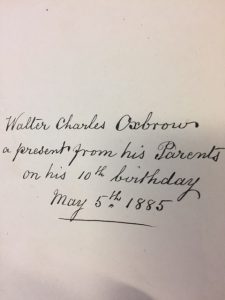 Walter Charles Oxbrow
a present from his Parents
on his 10th birthday
May 5th. 1885